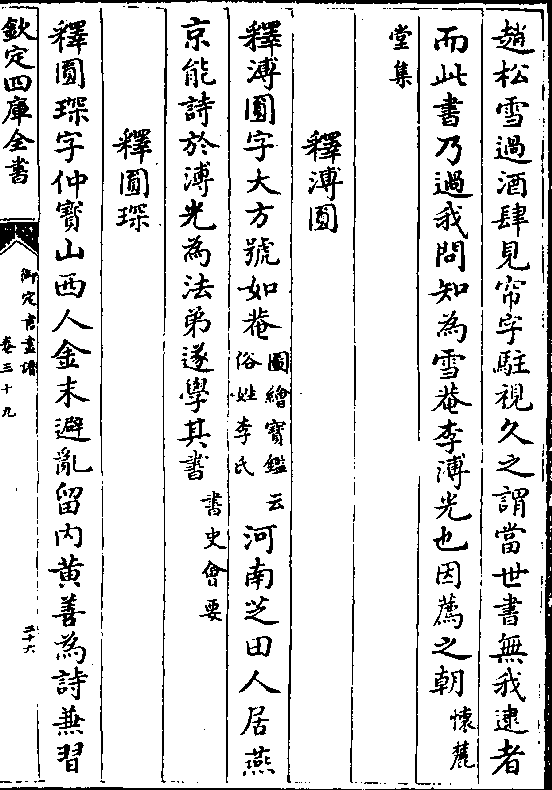 趙松雪過酒肆見帘字駐視久之謂當世書無我逮者
而此書乃過我問知為雪菴李溥光也因薦之朝懷麓
堂集
釋溥圓
釋溥圓字大方號如菴圖繪寶鑑云俗姓李氏河南芝田人居燕
京能詩於溥光為法弟遂學其書書史會要
釋圓琛
釋圓琛字仲寳山西人金末避亂留内黄善為詩兼習
欽定四庫全書
御定書畫譜
卷三十九
三十六